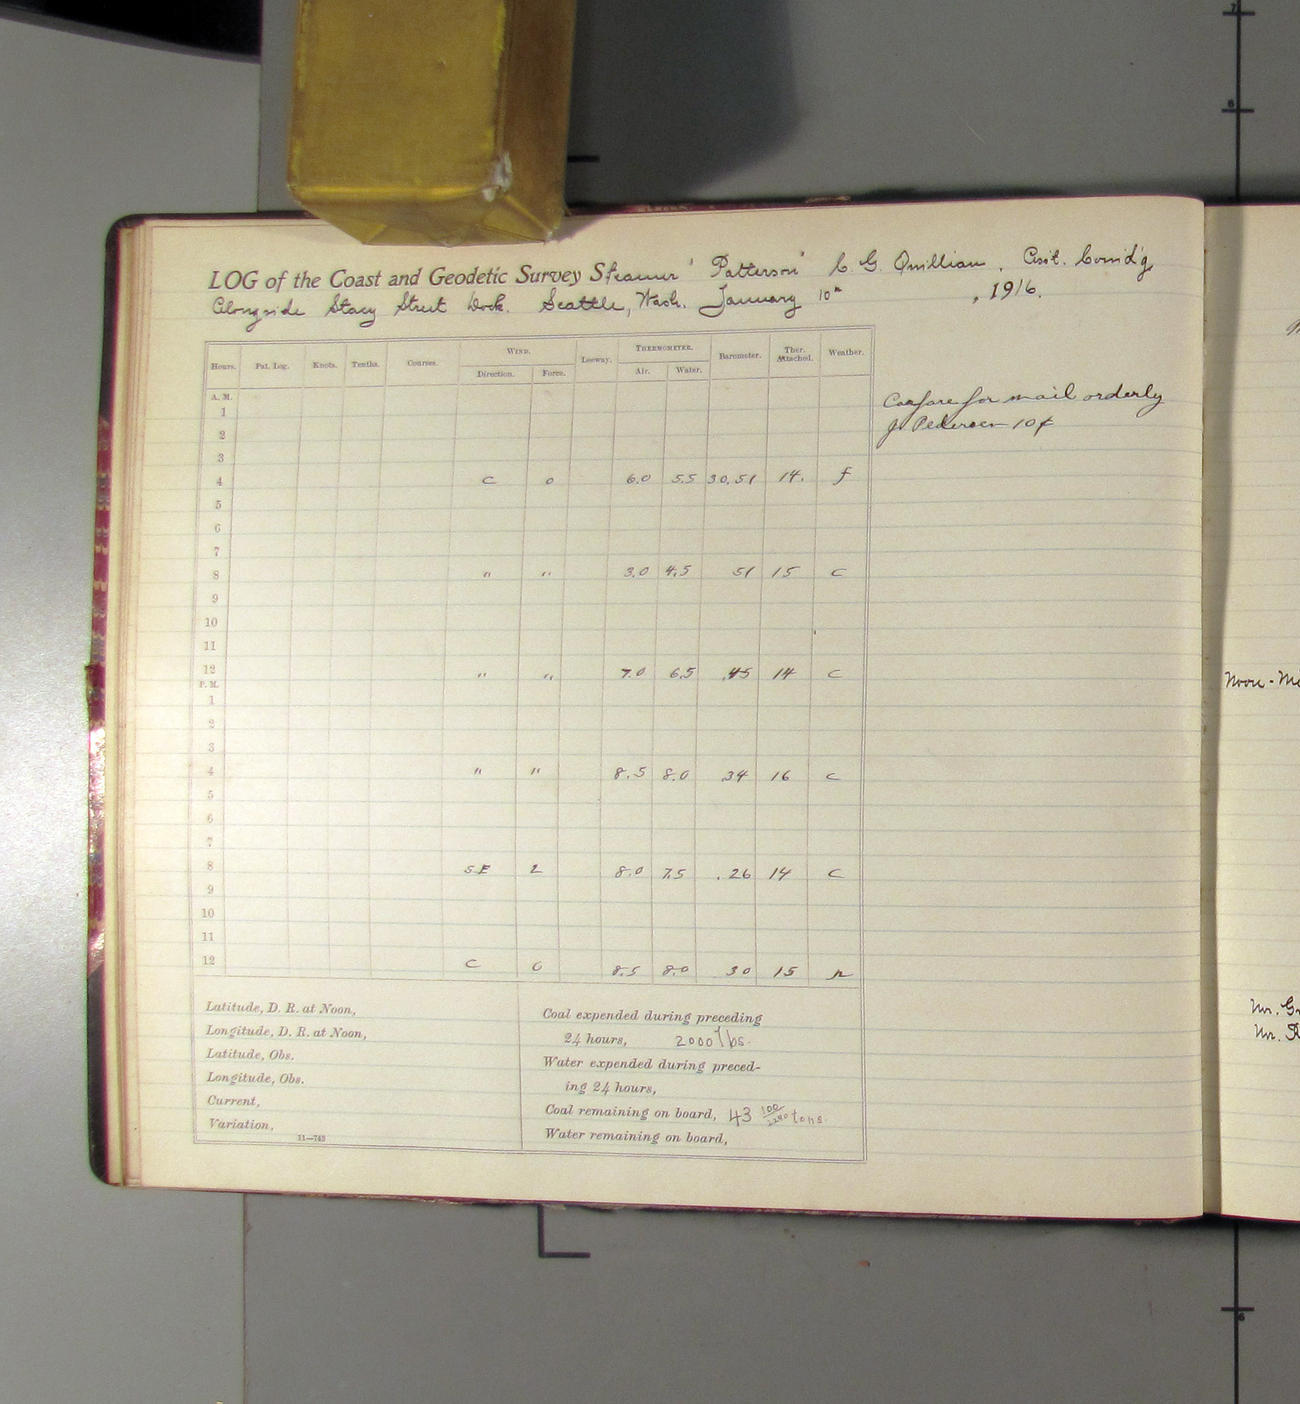 LOG of the Coast and Geodetic Survey Steamer "Patterson" C. G. Quillian, Asst. Comd'g,
Alongside Stacy Street Dock. Seattle, Wash. January 10th, 1916.
Hours. Pat. Log. Knots. Tenths. Courses. WIND. Leeway. THERMOMETER. Barometer. Ther. Attached. Weather.
Direction. Force. Air. Water.
A. M.
1
2
3
4 C 0 6.0 5.5 30.51 14. f
5
6
7
8 " " 3.0 4.5 51 15 c
9
10
11
12 " " 7.0 6.5 .45 14 c
P. M.
1
2
3
4 " " 8.5 8.0 .34 16 c
5
6
7
8 SE 2 8.0 7.5 .26 14 c
9
10
11
12 C 0 8.5 8.0 30 15 r
Carfare for mail orderly
J. Pedersen 10¢
Latitude, D. R. at Noon,
Longitude, D. R. at Noon,
Latitude, Obs.
Longitude, Obs.
Current,
Variation,
11—743
Coal expended during preceding
24 hours, 2000 lbs.
Water expended during preced-
ing 24 hours,
Coal remaining on board, 43 100/2240 tons.
Water remaining on board,
Noon -
Mr.
Mr.